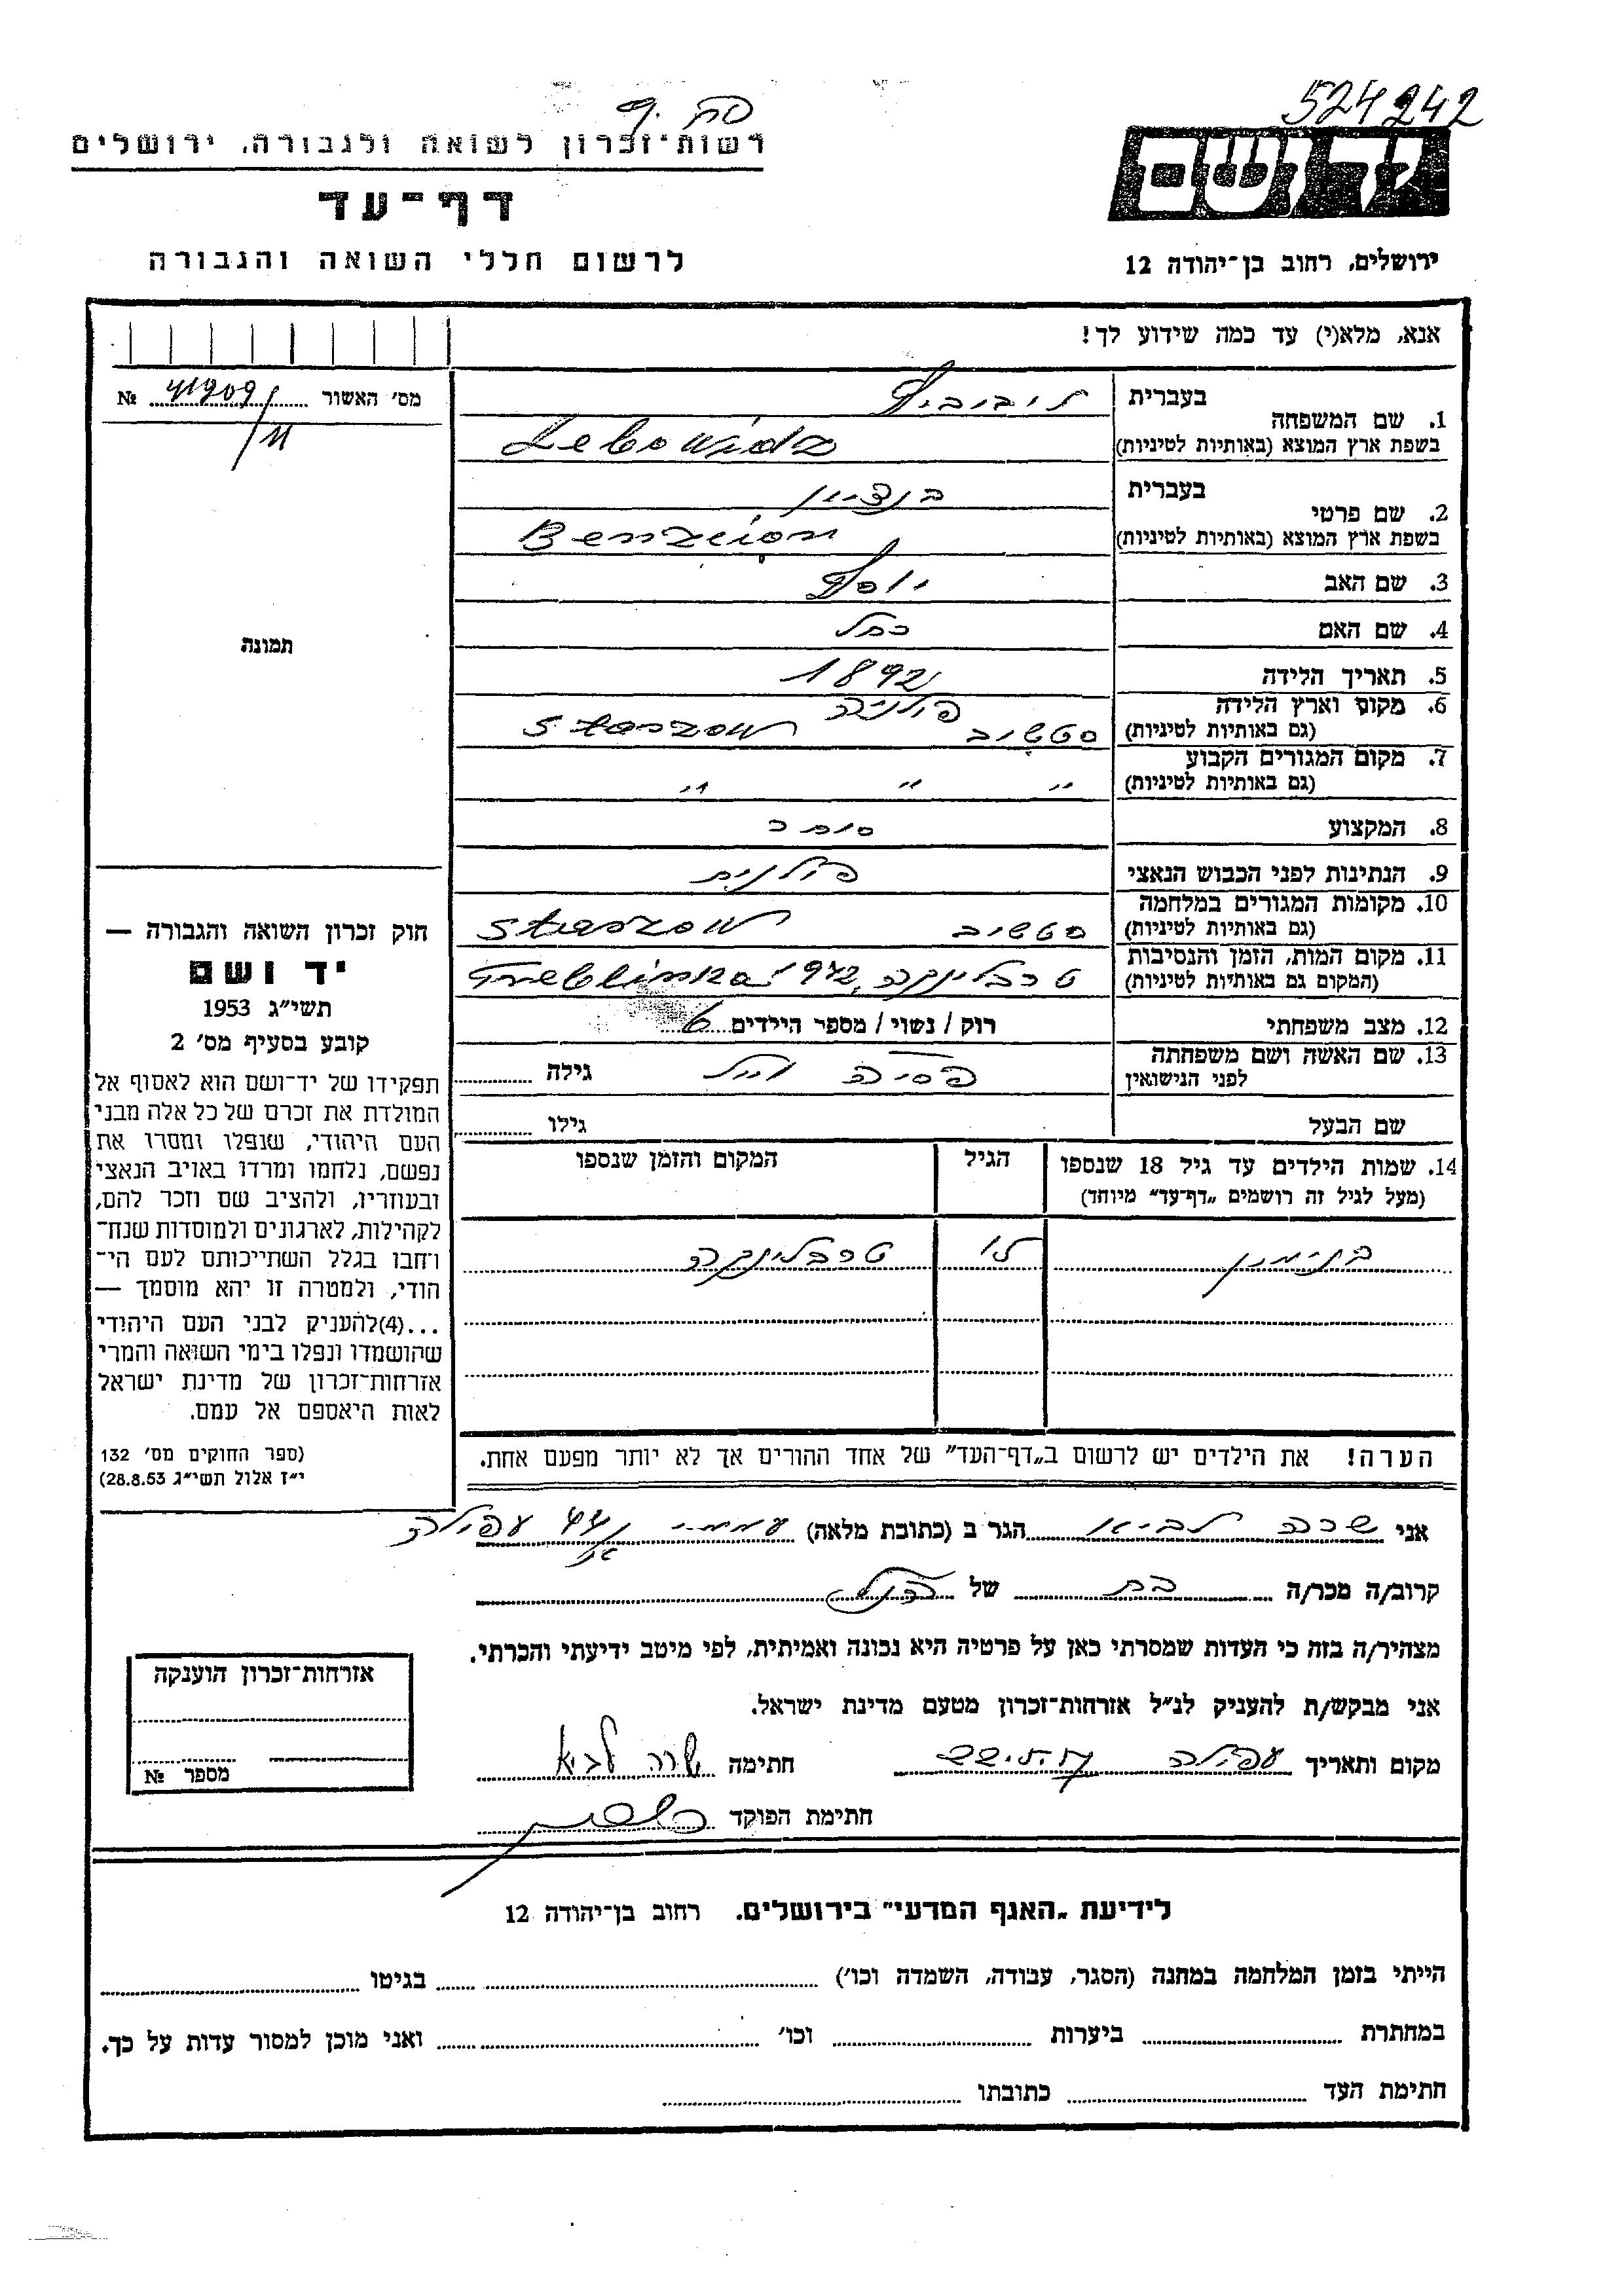 524242
רשות־זכרון לשואה ולגבורה, ירושלים
דף־עד
לרשום חללי השואה והגבורה
יד ושם
ירושלים, רחוב בן־יהודה 12
אנא, מלא(י) עד כמה שידוע לך!
מס׳ האשור 41909 №
/11
תמונה
1. שם המשפחה בעברית ליבוביץ
בשפת ארץ המוצא (באותיות לטיניות) Lebowidz
2. שם פרטי בעברית בנציון
בשפת ארץ המוצא (באותיות לטיניות) Benzion
3. שם האב יוסף
4. שם האם רחל
5. תאריך הלידה 1892
6. מקום וארץ הלידה פולניה
(גם באותיות לטיניות) סטשוב Staszow
7. מקום המגורים הקבוע
(גם באותיות לטיניות) " " "
8. המקצוע סוחר
9. הנתינות לפני הכבוש הנאצי פולנית
10. מקומות המגורים במלחמה
(גם באותיות לטיניות) סטשוב Staszow
11. מקום המות, הזמן והנסיבות
(המקום גם באותיות לטיניות) טרבלינקה, 942 Treblinka
12. מצב משפחתי רוק / נשוי / מספר הילדים 6
13. שם האשה ושם משפחתה
לפני הנישואין גילה
שם הבעל גילו
14. שמות הילדים עד גיל 18 שנספו הגיל המקום והזמן שנספו
(מעל לגיל זה רושמים „דף־עד״ מיוחד)
בנימין טרבלינקה
הערה! את הילדים יש לרשום ב„דף־העד״ של אחד ההורים אך לא יותר מפעם אחת.
חוק זכרון השואה והגבורה —
יד ושם
תשי״ג 1953
קובע בסעיף מס׳ 2
תפקידו של יד־ושם הוא לאסוף אל
המולדת את זכרם של כל אלה מבני
העם היהודי, שנפלו ומסרו את
נפשם, נלחמו ומרדו באויב הנאצי
ובעוזריו, ולהציב שם וזכר להם,
לקהילות, לארגונים ולמוסדות שנח־
רחבו בגלל השתייכותם לעם הי־
הודי, ולמטרה זו יהא מוסמך —
...(4)להעניק לבני העם היהודי
שהושמדו ונפלו בימי השואה והמרי
אזרחות־זכרון של מדינת ישראל
לאות היאספם אל עמם.
(ספר החוקים מס׳ 132
י״ז אלול תשי״ג 28.8.53)
אני שרה לביא הגר ב (כתובת מלאה) עפולה
קרוב/ה מכר/ה בת של הנ״ל
מצהיר/ה בזה כי העדות שמסרתי כאן על פרטיה היא נכונה ואמיתית, לפי מיטב ידיעתי והכרתי.
אני מבקש/ת להעניק לנ״ל אזרחות־זכרון מטעם מדינת ישראל.
מקום ותאריך עפולה חתימה שרה לביא
חתימת הפוקד
אזרחות־זכרון הוענקה
מספר №
לידיעת „האגף המדעי״ בירושלים. רחוב בן־יהודה 12
הייתי בזמן המלחמה במחנה (הסגר, עבודה, השמדה וכו׳) בגיטו
במחתרת ביערות וכו׳ ואני מוכן למסור עדות על כך.
חתימת העד כתובתו